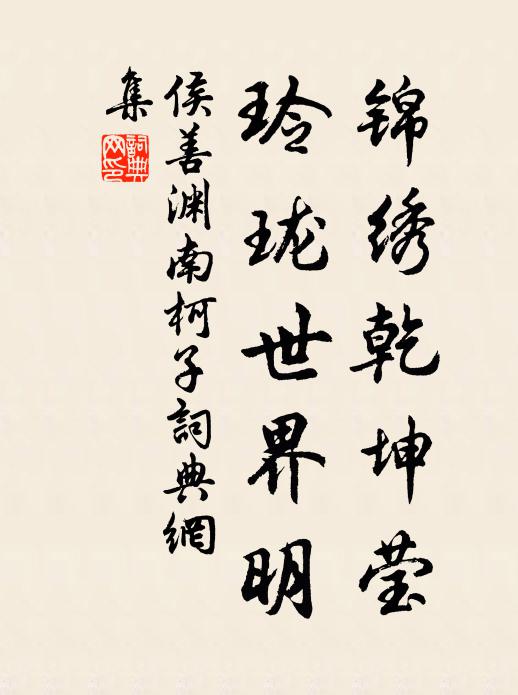 锦绣乾坤莹
玲珑世界明
侯善渊南柯子詞典網
集
詞典网印